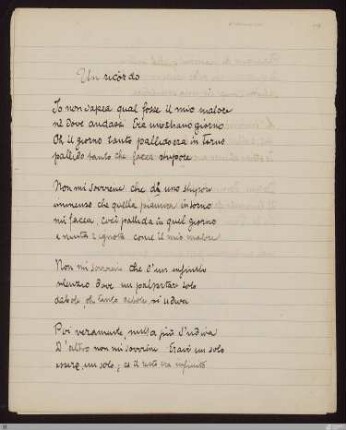 Un ricordo
Io non sapea qual fosse il mio malore
nè dove andassi. Era uno strano giorno.
Oh il giorno tanto pallido era in torno
pallido tanto che facea stupore.
Non mi sovviene che di uno stupore
immenso che quella pianura in torno
mi facea, così pallida in quel giorno
e muta e ignota come il mio malore.
Non mi sovviene che d'un infinito
silenzio dove un palpitare solo
debole, oh tanto debole si udiva.
Poi veramente, nulla più s'udiva.
D'altro non mi sovviene. Eravi un solo
essere, un solo; e il resto era infinito.